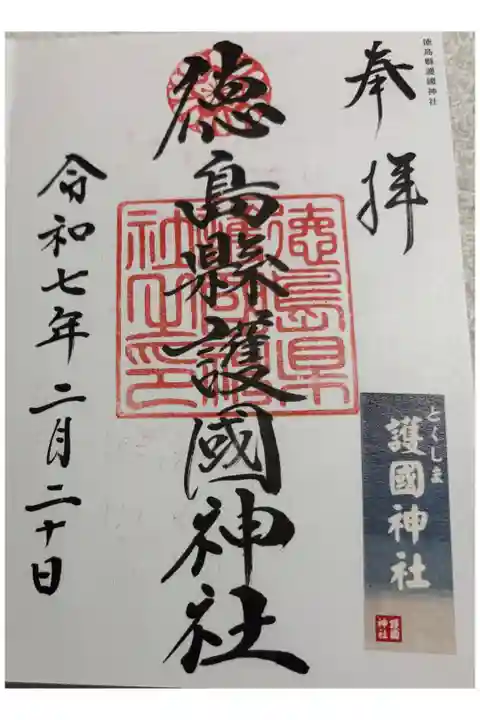 徳島縣護國神社
奉拝
徳島縣護國神社
徳島県護國神社之印
令和七年二月二十日
とくしま
護國神社
護國神社